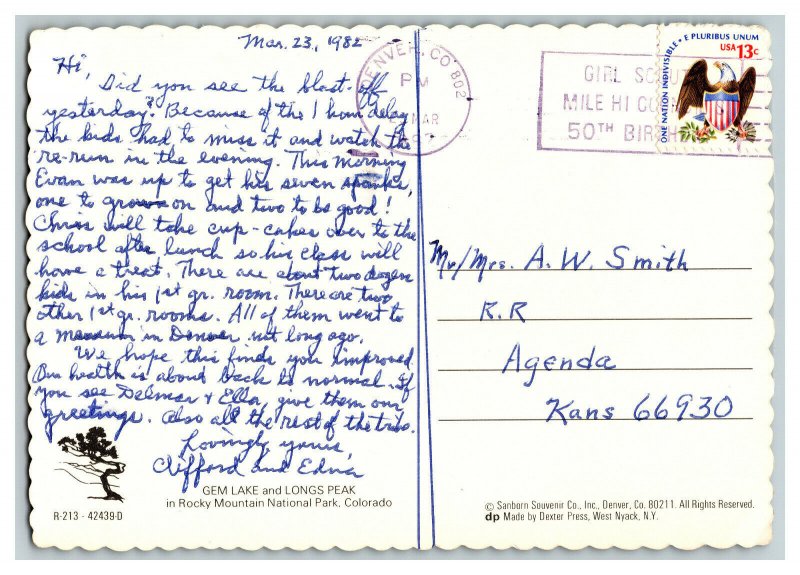 Mar. 23, 1982
Hi,
Did you see the blast-off
yesterday? Because of the 1 hour delay
the kids had to miss it and watch the
re-run in the evening. This morning
Evan was up to get his seven spanks,
one to grow on and two to be good!
Chris will take cup-cakes over to the
school after lunch so his class will
have a treat. There are about two dozen
kids in his 1st gr. room. There are two
other 1st gr. rooms. All of them went to
a museum in Denver not long ago.
We hope this finds you improved.
Our health is about back to normal. If
you see Delmar & Ella, give them our
greetings. Also all the rest of the
Lovingly yours,
Clifford and Edna
GEM LAKE and LONGS PEAK
in Rocky Mountain National Park, Colorado
R-213 - 42439-D
DENVER, CO 802
PM
MAR
GIRL SCOUT
MILE HI CO
50TH BIRTH
ONE NATION INDIVISIBLE • E PLURIBUS UNUM
USA 13c
Mr/Mrs. A. W. Smith
R.R
Agenda
Kans 66930
© Sanborn Souvenir Co., Inc., Denver, Co. 80211. All Rights Reserved.
dp Made by Dexter Press, West Nyack, N.Y.